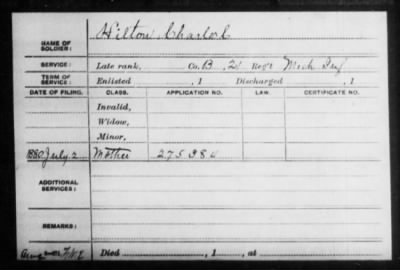 NAME OF SOLDIER: Hilton, Charles C
SERVICE: Late rank, Co. B, 21 Reg't Mich Inf
TERM OF SERVICE: Enlisted , 1 Discharged , 1
DATE OF FILING. CLASS. APPLICATION NO. LAW. CERTIFICATE NO.
Invalid,
Widow,
Minor,
1880 July 2 Mother 275384
ADDITIONAL SERVICES:
REMARKS:
Died , 1 , at